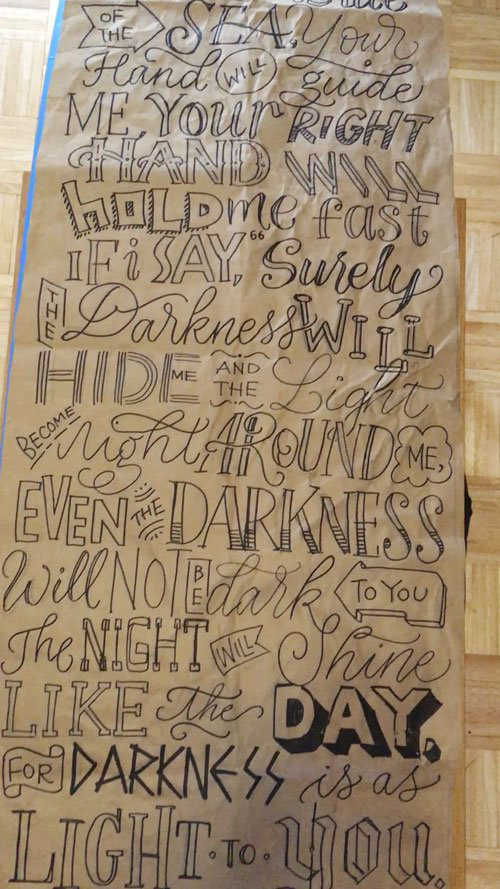 OF THE SEA, Your
Hand WILL guide
ME, Your RIGHT
HAND WILL
hOLD me fast
IF i SAY, “ Surely
THE Darkness WILL
HIDE ME AND THE Light
BECOME night AROUND ME,
EVEN THE DARKNESS
Will NOT BE dark TO YOU
The NIGHT WILL Shine
LIKE the DAY,
FOR DARKNESS is as
LIGHT · TO · you.